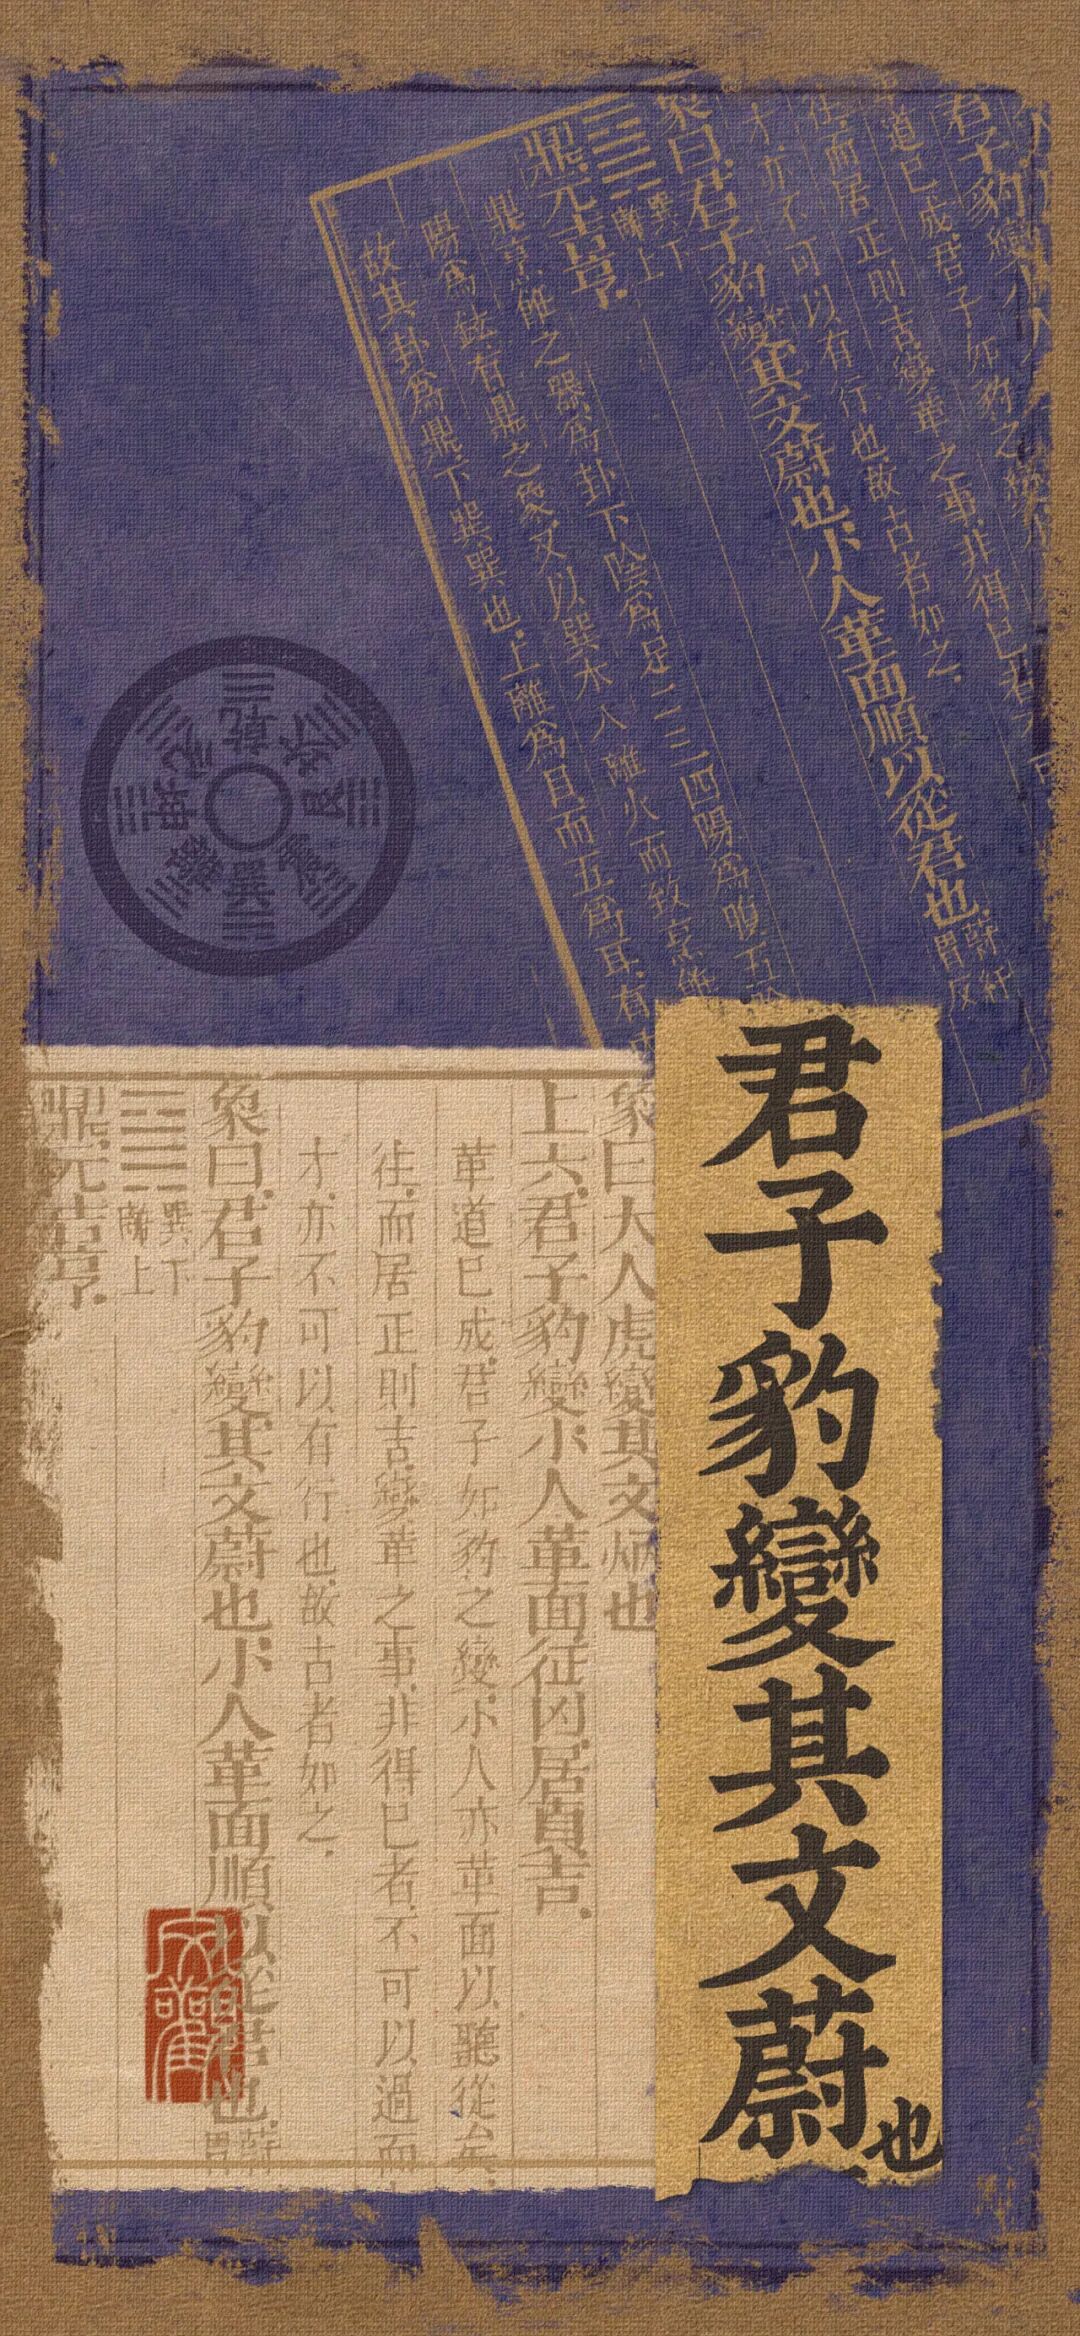 君子豹變
革道已成君子如豹之變小
往而居正則吉變革之事.非得已者不可
才.亦不可以有行也.故古者如之.
象曰.君子豹變其文蔚也.小人革面順以從君也.蔚紆胃反
䷱巽下離上
鼎.元吉亨.
鼎烹飪之器爲卦下陰爲足二三四陽爲腹五陰
陽爲鉉.有鼎之象又以巽木入離火而致烹飪
故其卦爲鼎下巽巽也.上離爲目.而五爲耳.有中
乾坎艮震巽離坤兌
君子豹變其文蔚也
象曰大人虎變其文炳也
上六.君子豹變小人革面征凶.居貞吉.
革道已成.君子如豹之變.小人亦革面以聽從矣.
往.而居正則吉.變革之事.非得已者.不可以過.而
才.亦不可以有行也.故古者如之.
象曰.君子豹變.其文蔚也.小人革面順以從君也.蔚胃
䷱巽下離上
鼎.元吉亨.